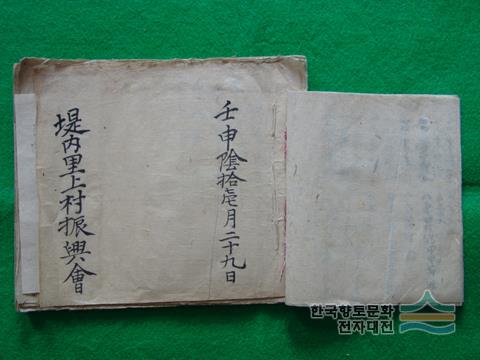 壬申陰拾壱月二十九日
堤內里上村振興會
한국향토문화
전자대전